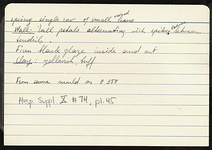 spring single row of small
Wall: tall petals alternating with spiky between
tendril.
Firm black glaze inside and out
Clay: yellowish buff
From same mould as P 558
Hesp. Suppl X #74, pl. 45